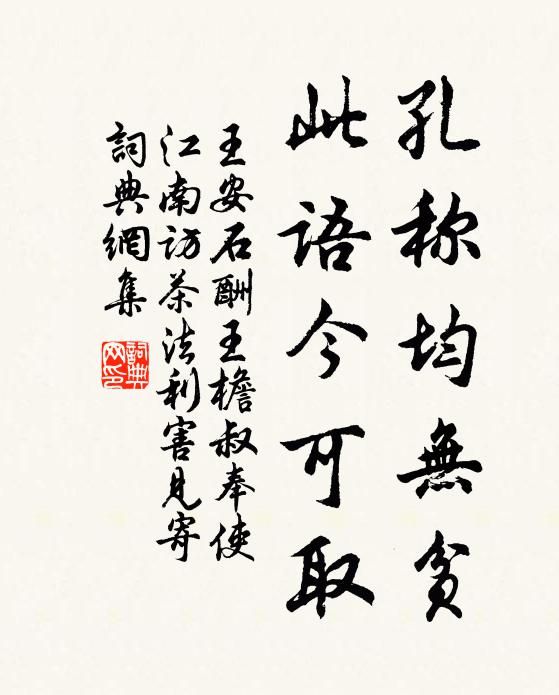 孔称均無貧
此语今可取
王安石酬王檐叔奉使
江南访茶法利害見寄
詞典網集
詞典網印